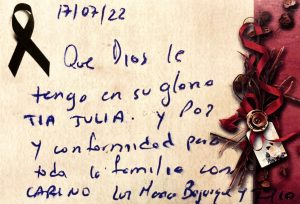 17/07/22
Que Dios le
tengo en su gloria
TIA JULIA. y Paz
y conformidad para
toda la familia con
CARIÑO Luz Maria Bojorquez y